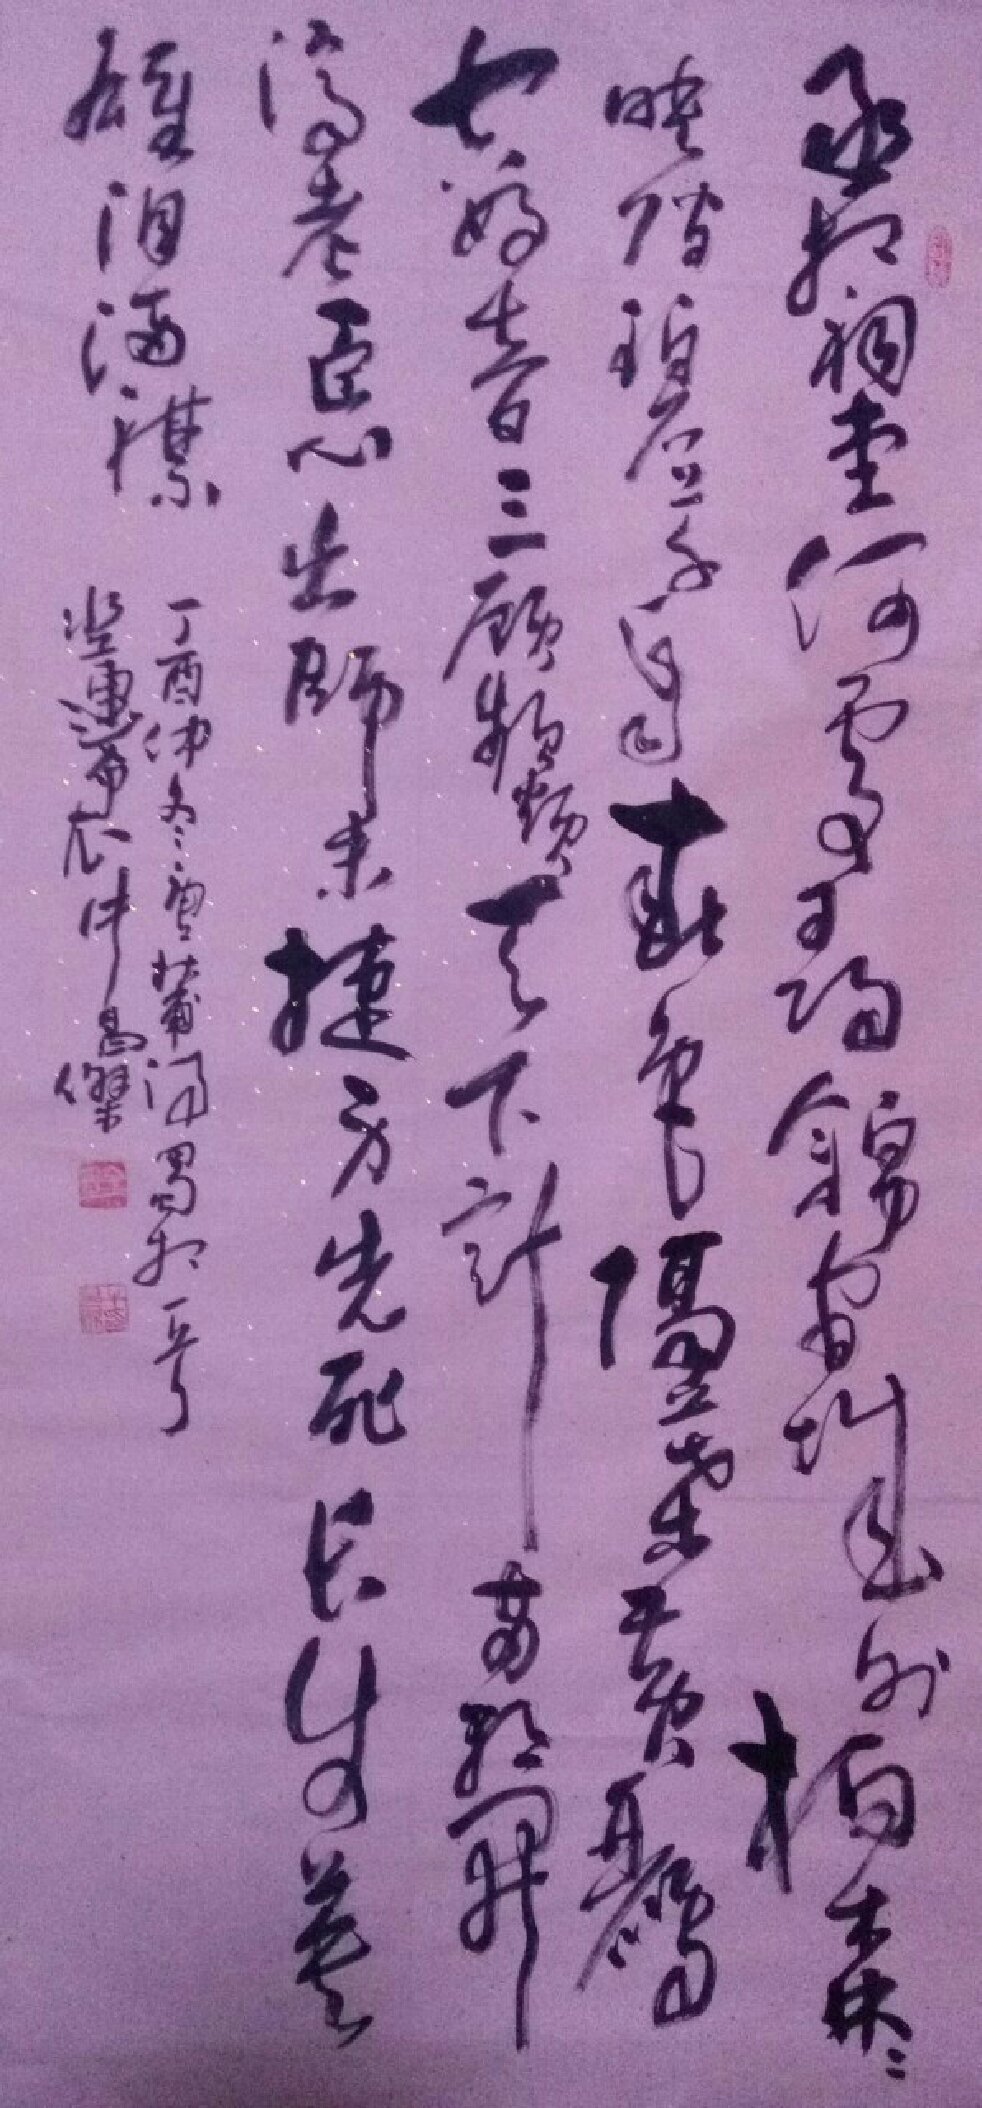 丞相祠堂何處尋錦官城外柏森〻
映階碧草自春色隔葉黃鸝
空好音三顧頻煩天下計兩朝開
濟老臣心出師未捷身先死長使英
雄泪滿襟
丁酉仲冬書杜甫詩蜀相一首
布衣牛昌傑